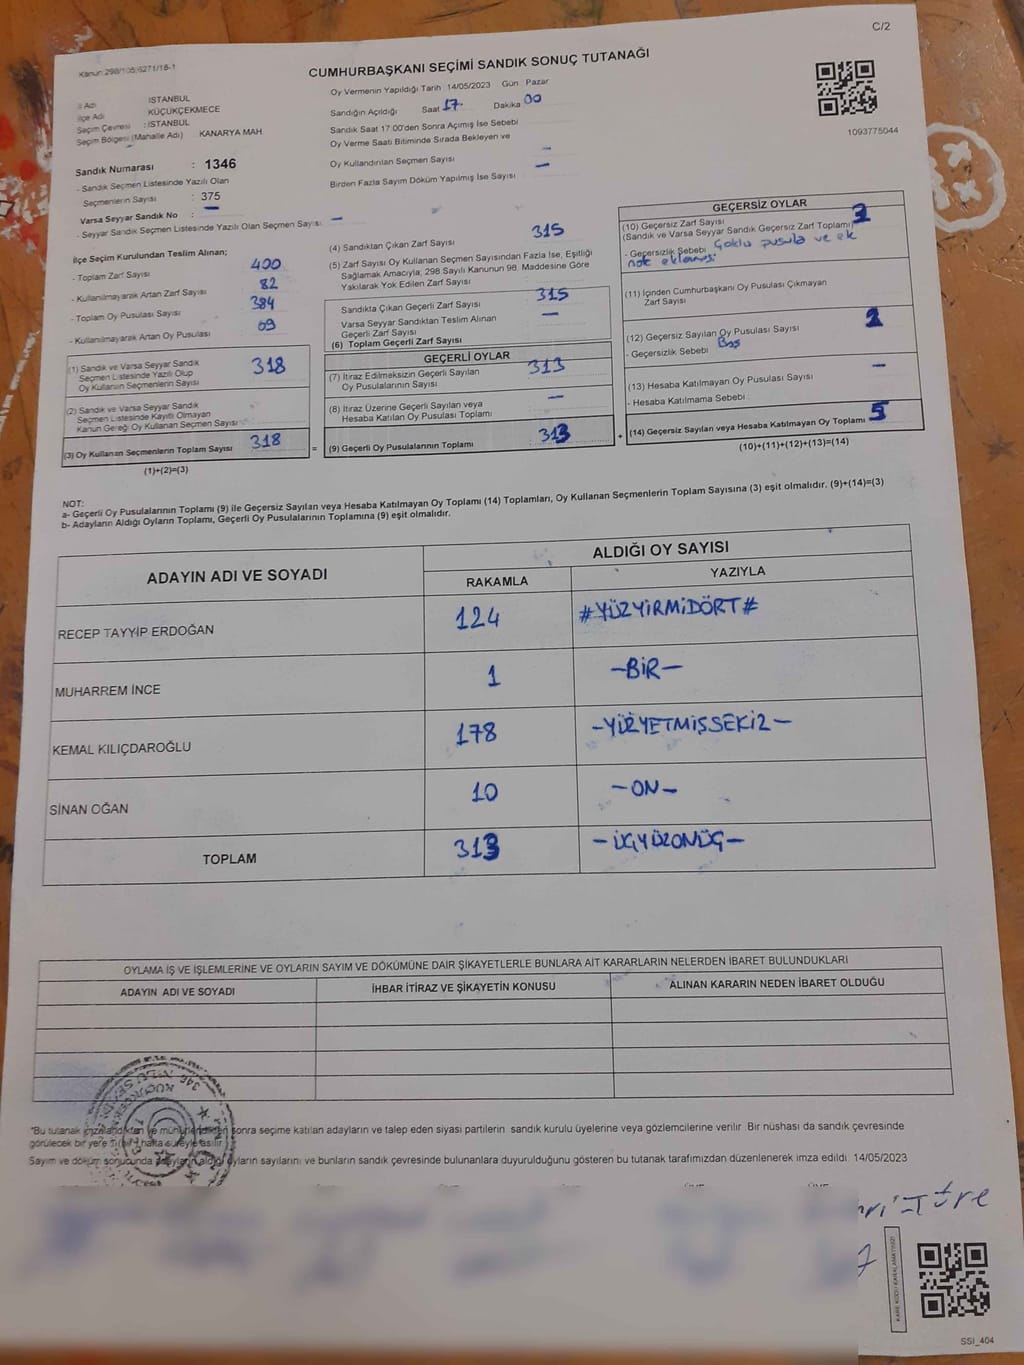 C/2
Kanun:298/105;6271/16-1
CUMHURBAŞKANI SEÇİMİ SANDIK SONUÇ TUTANAĞI
İl Adı ISTANBUL
İlçe Adı KÜÇÜKÇEKMECE
Seçim Çevresi : İSTANBUL
Seçim Bölgesi (Mahalle Adı) : KANARYA MAH
Sandık Numarası : 1346
- Sandık Seçmen Listesinde Yazılı Olan
Seçmenlerin Sayısı : 375
Varsa Seyyar Sandık No : —
- Seyyar Sandık Seçmen Listesinde Yazılı Olan Seçmen Sayısı : —
Oy Vermenin Yapıldığı Tarih 14/05/2023 Gün : Pazar
Sandığın Açıldığı Saat 17. Dakika 00
Sandık Saat 17.00'den Sonra Açımış İse Sebebi
Oy Verme Saati Bitiminde Sırada Bekleyen ve
Oy Kullandırılan Seçmen Sayısı —
Birden Fazla Sayım Döküm Yapılmış İse Sayısı —
1093775044
İlçe Seçim Kurulundan Teslim Alınan;
- Toplam Zarf Sayısı 400
- Kullanılmayarak Artan Zarf Sayısı 82
- Toplam Oy Pusulası Sayısı 384
- Kullanılmayarak Artan Oy Pusulası 69
(1) Sandık ve Varsa Seyyar Sandık
Seçmen Listesinde Yazılı Olup
Oy Kullanan Seçmenlerin Sayısı 318
(2) Sandık ve Varsa Seyyar Sandık
Seçmen Listesinde Kayıtlı Olmayan
Kanun Gereği Oy Kullanan Seçmen Sayısı
(3) Oy Kullanan Seçmenlerin Toplam Sayısı 318
(1)+(2)=(3)
(4) Sandıktan Çıkan Zarf Sayısı 315
(5) Zarf Sayısı Oy Kullanan Seçmen Sayısından Fazla İse, Eşitliği
Sağlamak Amacıyla, 298 Sayılı Kanunun 98. Maddesine Göre
Yakılarak Yok Edilen Zarf Sayısı
Sandıkta Çıkan Geçerli Zarf Sayısı 315
Varsa Seyyar Sandıktan Teslim Alınan
Geçerli Zarf Sayısı —
(6) Toplam Geçerli Zarf Sayısı
GEÇERLİ OYLAR
(7) İtiraz Edilmeksizin Geçerli Sayılan
Oy Pusulalarının Sayısı 313
(8) İtiraz Üzerine Geçerli Sayılan veya
Hesaba Katılan Oy Pusulası Toplamı —
= (9) Geçerli Oy Pusulalarının Toplamı 313
GEÇERSİZ OYLAR
(10) Geçersiz Zarf Sayısı
(Sandık ve Varsa Seyyar Sandık Geçersiz Zarf Toplamı)
- Geçersizlik Sebebi Çoklu pusula ve ek
not eklemesi
(11) İçinden Cumhurbaşkanı Oy Pusulası Çıkmayan
Zarf Sayısı
(12) Geçersiz Sayılan Oy Pusulası Sayısı
- Geçersizlik Sebebi Boş
(13) Hesaba Katılmayan Oy Pusulası Sayısı —
- Hesaba Katılmama Sebebi
+ (14) Geçersiz Sayılan veya Hesaba Katılmayan Oy Toplamı 5
(10)+(11)+(12)+(13)=(14)
NOT:
a- Geçerli Oy Pusulalarının Toplamı (9) ile Geçersiz Sayılan veya Hesaba Katılmayan Oy Toplamı (14) Toplamları, Oy Kullanan Seçmenlerin Toplam Sayısına (3) eşit olmalıdır. (9)+(14)=(3)
b- Adayların Aldığı Oyların Toplamı, Geçerli Oy Pusulalarının Toplamına (9) eşit olmalıdır.
ADAYIN ADI VE SOYADI ALDIĞI OY SAYISI
RAKAMLA YAZIYLA
RECEP TAYYİP ERDOĞAN 124 #YÜZYİRMİDÖRT#
MUHARREM İNCE 1 -BİR-
KEMAL KILIÇDAROĞLU 178 -YÜZYETMİŞSEKİZ-
SİNAN OĞAN 10 -ON-
TOPLAM 313 -ÜÇYÜZONÜÇ-
OYLAMA İŞ VE İŞLEMLERİNE VE OYLARIN SAYIM VE DÖKÜMÜNE DAİR ŞİKAYETLERLE BUNLARA AİT KARARLARIN NELERDEN İBARET BULUNDUKLARI
ADAYIN ADI VE SOYADI İHBAR İTİRAZ VE ŞİKAYETİN KONUSU ALINAN KARARIN NEDEN İBARET OLDUĞU
*Bu tutanak imzalandıktan ve mühürlendikten sonra seçime katılan adayların ve talep eden siyasi partilerin sandık kurulu üyelerine veya gözlemcilerine verilir .Bir nüshası da sandık çevresinde
görülecek bir yere 1 bir hafta süreyle asılır
Sayım ve döküm sonucunda adayların aldığı oyların sayılarını ve bunların sandık çevresinde bulunanlara duyurulduğunu gösteren bu tutanak tarafımızdan düzenlenerek imza edildi. 14/05/2023
SSI_404